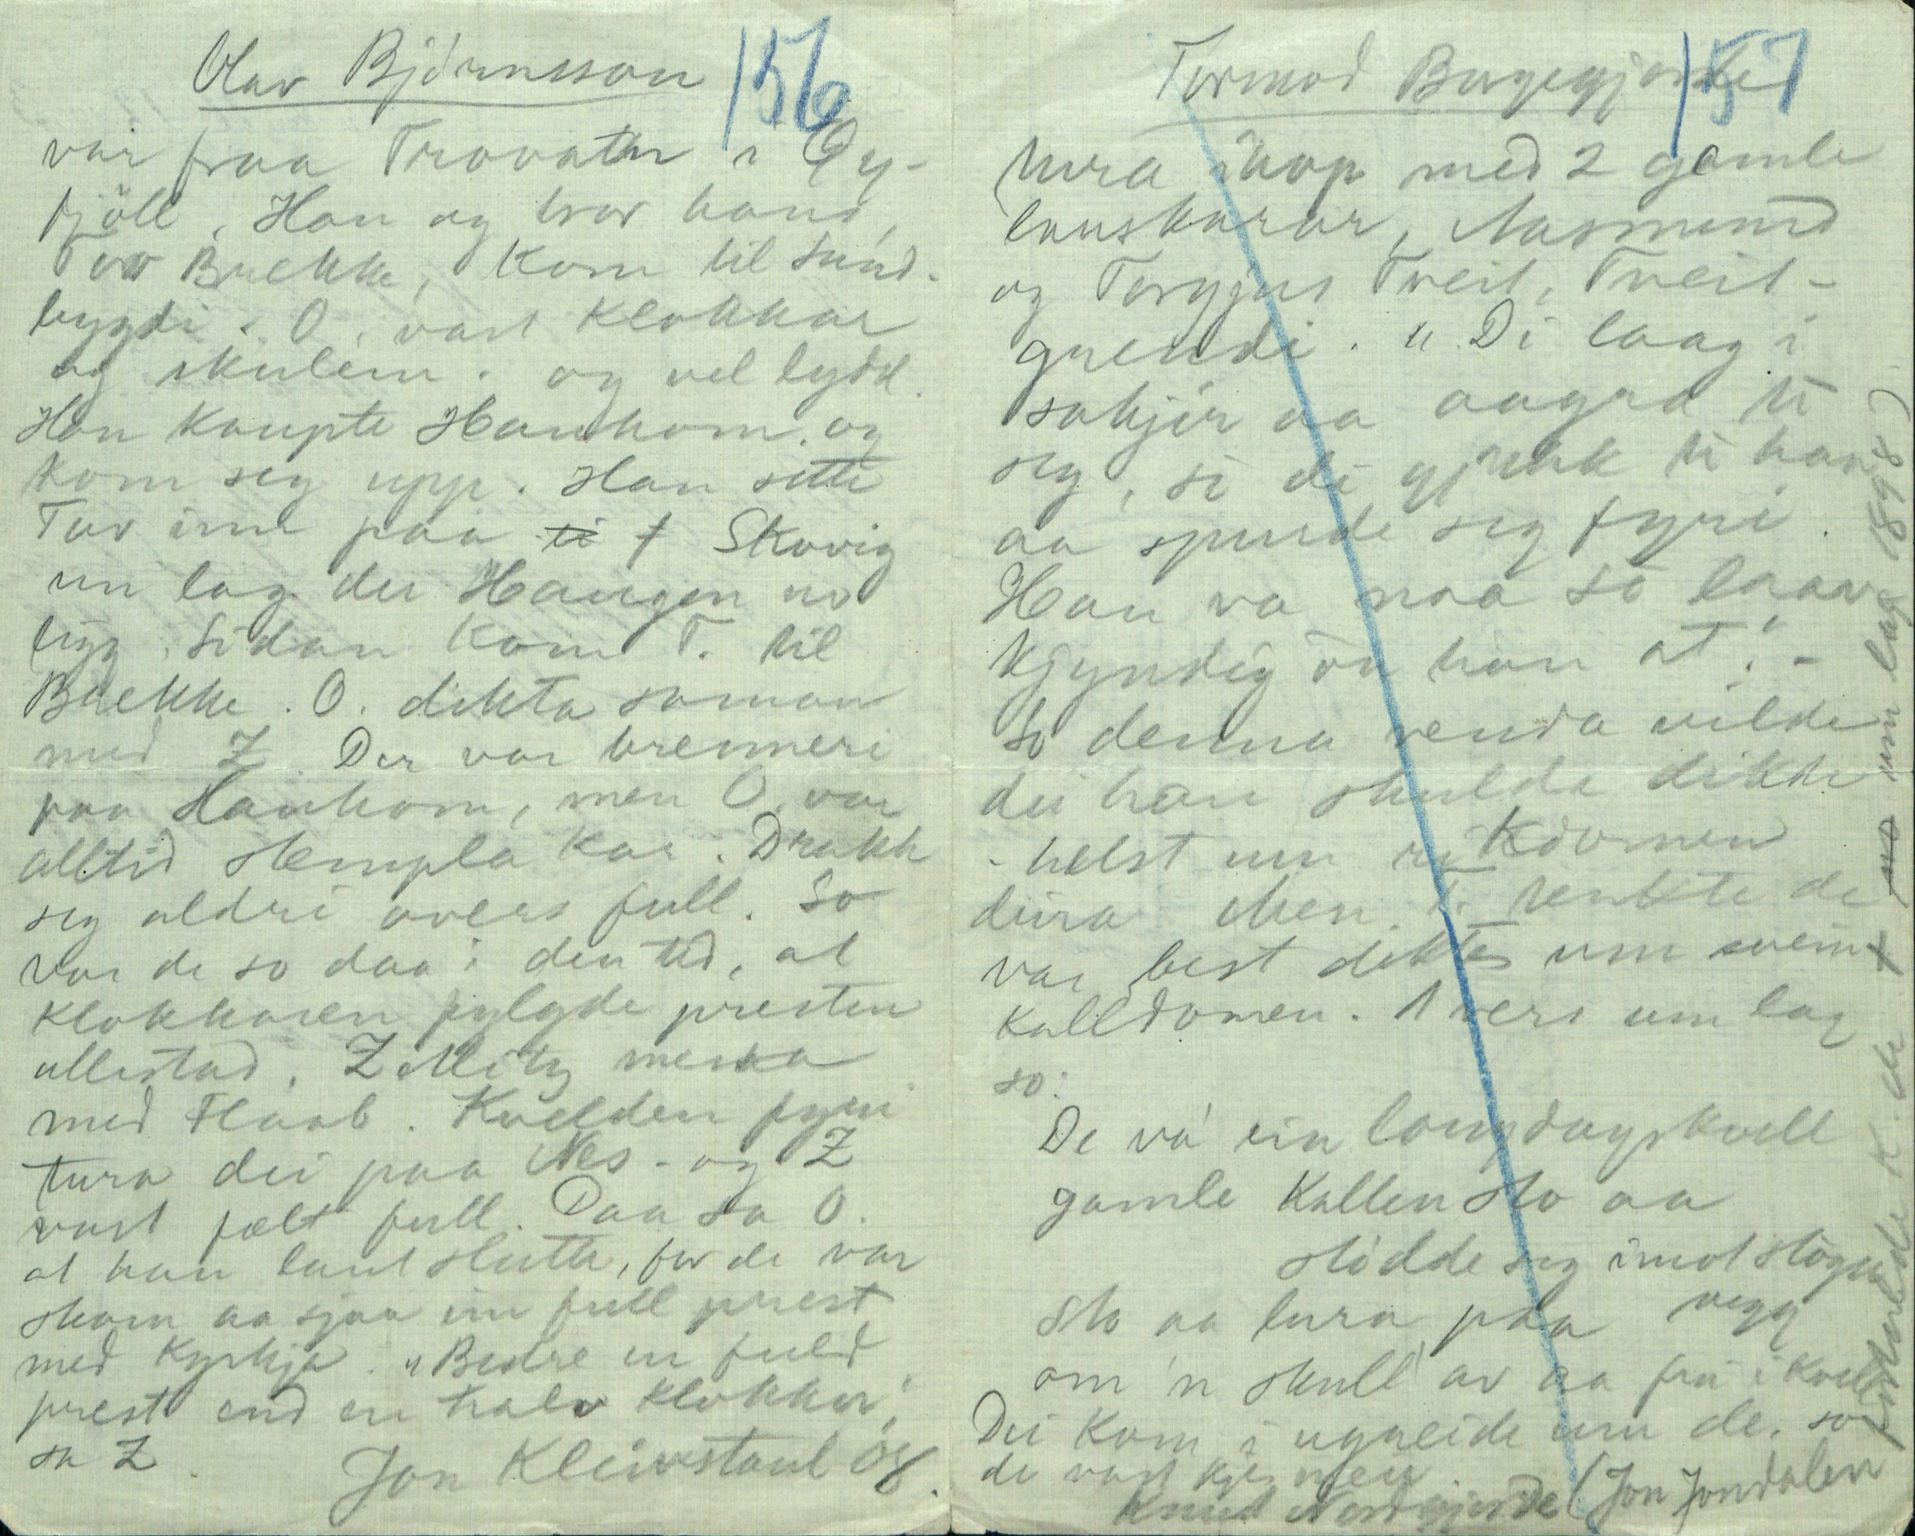 Olav Bjørnsson 156
var fraa Trovatn i Øy-
fjöll. Han og bror hans,
Tov Brekke, kom til Sund-
bygdi. O. vart klokkar
og skulem. og vel lydd.
Han kaupte Haukom. og
kom seg upp. Han sette
Tov inn paa ti f Skovig
um lag der Haugen no
ligg. Sidan kom T. til
Brekke. O. dikta saman
med Z. Der var brenneri
paa Haukom, men O. var
alltid stempla kar. Drakk
seg aldri overs full. So
var de so daa i den tid, at
klokkaren fylgde presten
allestad. Z messa
med Flaab. Kvelden fyri
tura dei paa Nes - og Z
vart fælt full. Daa sa O.
at han laut slutte, for de var
skam aa sjaa ein full prest
med kyrkja. "Bedre en fuld
prest end en halv klokker,"
sa Z.
Jon Kleivstaul 08.
Tormod 157
hera ihop med 2 gamle
lauskarar, Aasmund
og Torgjus Tveit, Tveit-
grendi. "Di laag i
sakjir aa aagra ti
seg, so di gjekk ti han
aa spurde seg fyri.
Han va naa so laav
kjyndig òn han at". -
So denna venda vilde
dei han skulde dikte
- helst um
deira. Men T. tenkte de
var best dikte um svein
kalldomen. 1 vers um lag
so:
De va' ein laugdagskvell
gamle Kallen sto aa
stödde seg imot stöge
vegg
sto aa lura paa
om 'n skull' av aa fri i kvell
Dei kom i ugreide um de, so
de vart kjend
Knut Nordgjerde (Jon Jondalen
fortalde K. de um lag 1898)